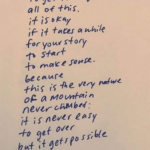 all of this.
it is okay
if it takes a while
for your story
to start
to make sense.
because
this is the very nature
of a mountain
never climbed:
it is never easy
to get over
but it gets possible